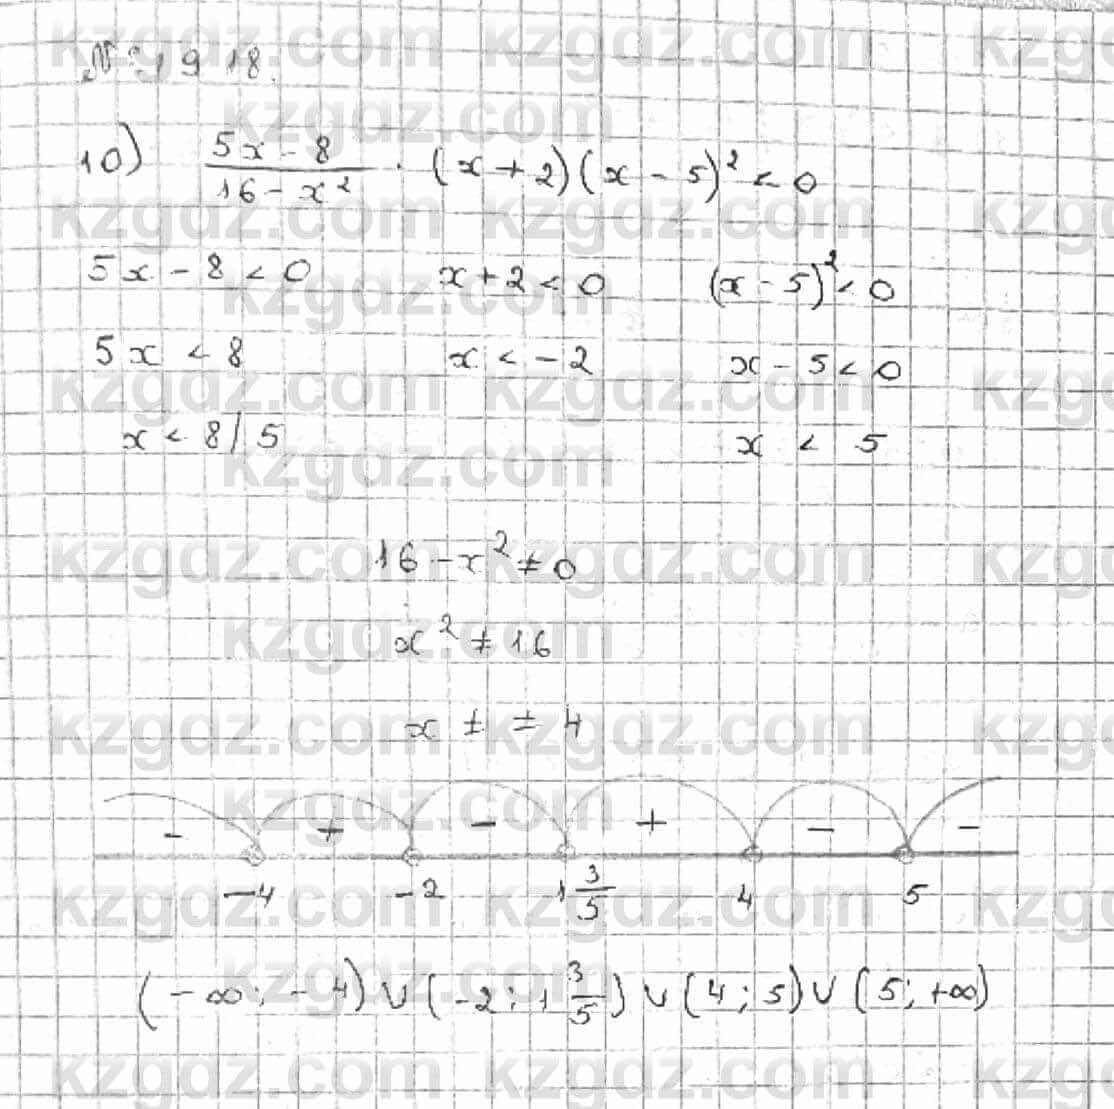 № 1918.
10) (5x - 8)/(16 - x²) · (x + 2)(x - 5)² < 0
5x - 8 < 0 x + 2 < 0 (x - 5)² < 0
5x < 8 x < -2 x - 5 < 0
x < 8/5 x < 5
16 - x² ≠ 0
x² ≠ 16
x ≠ ± 4
- + - + - -
-4 -2 1 3/5 4 5
(-∞; -4) ∪ (-2; 1 3/5) ∪ (4; 5) ∪ (5; +∞)
kzgdz.com